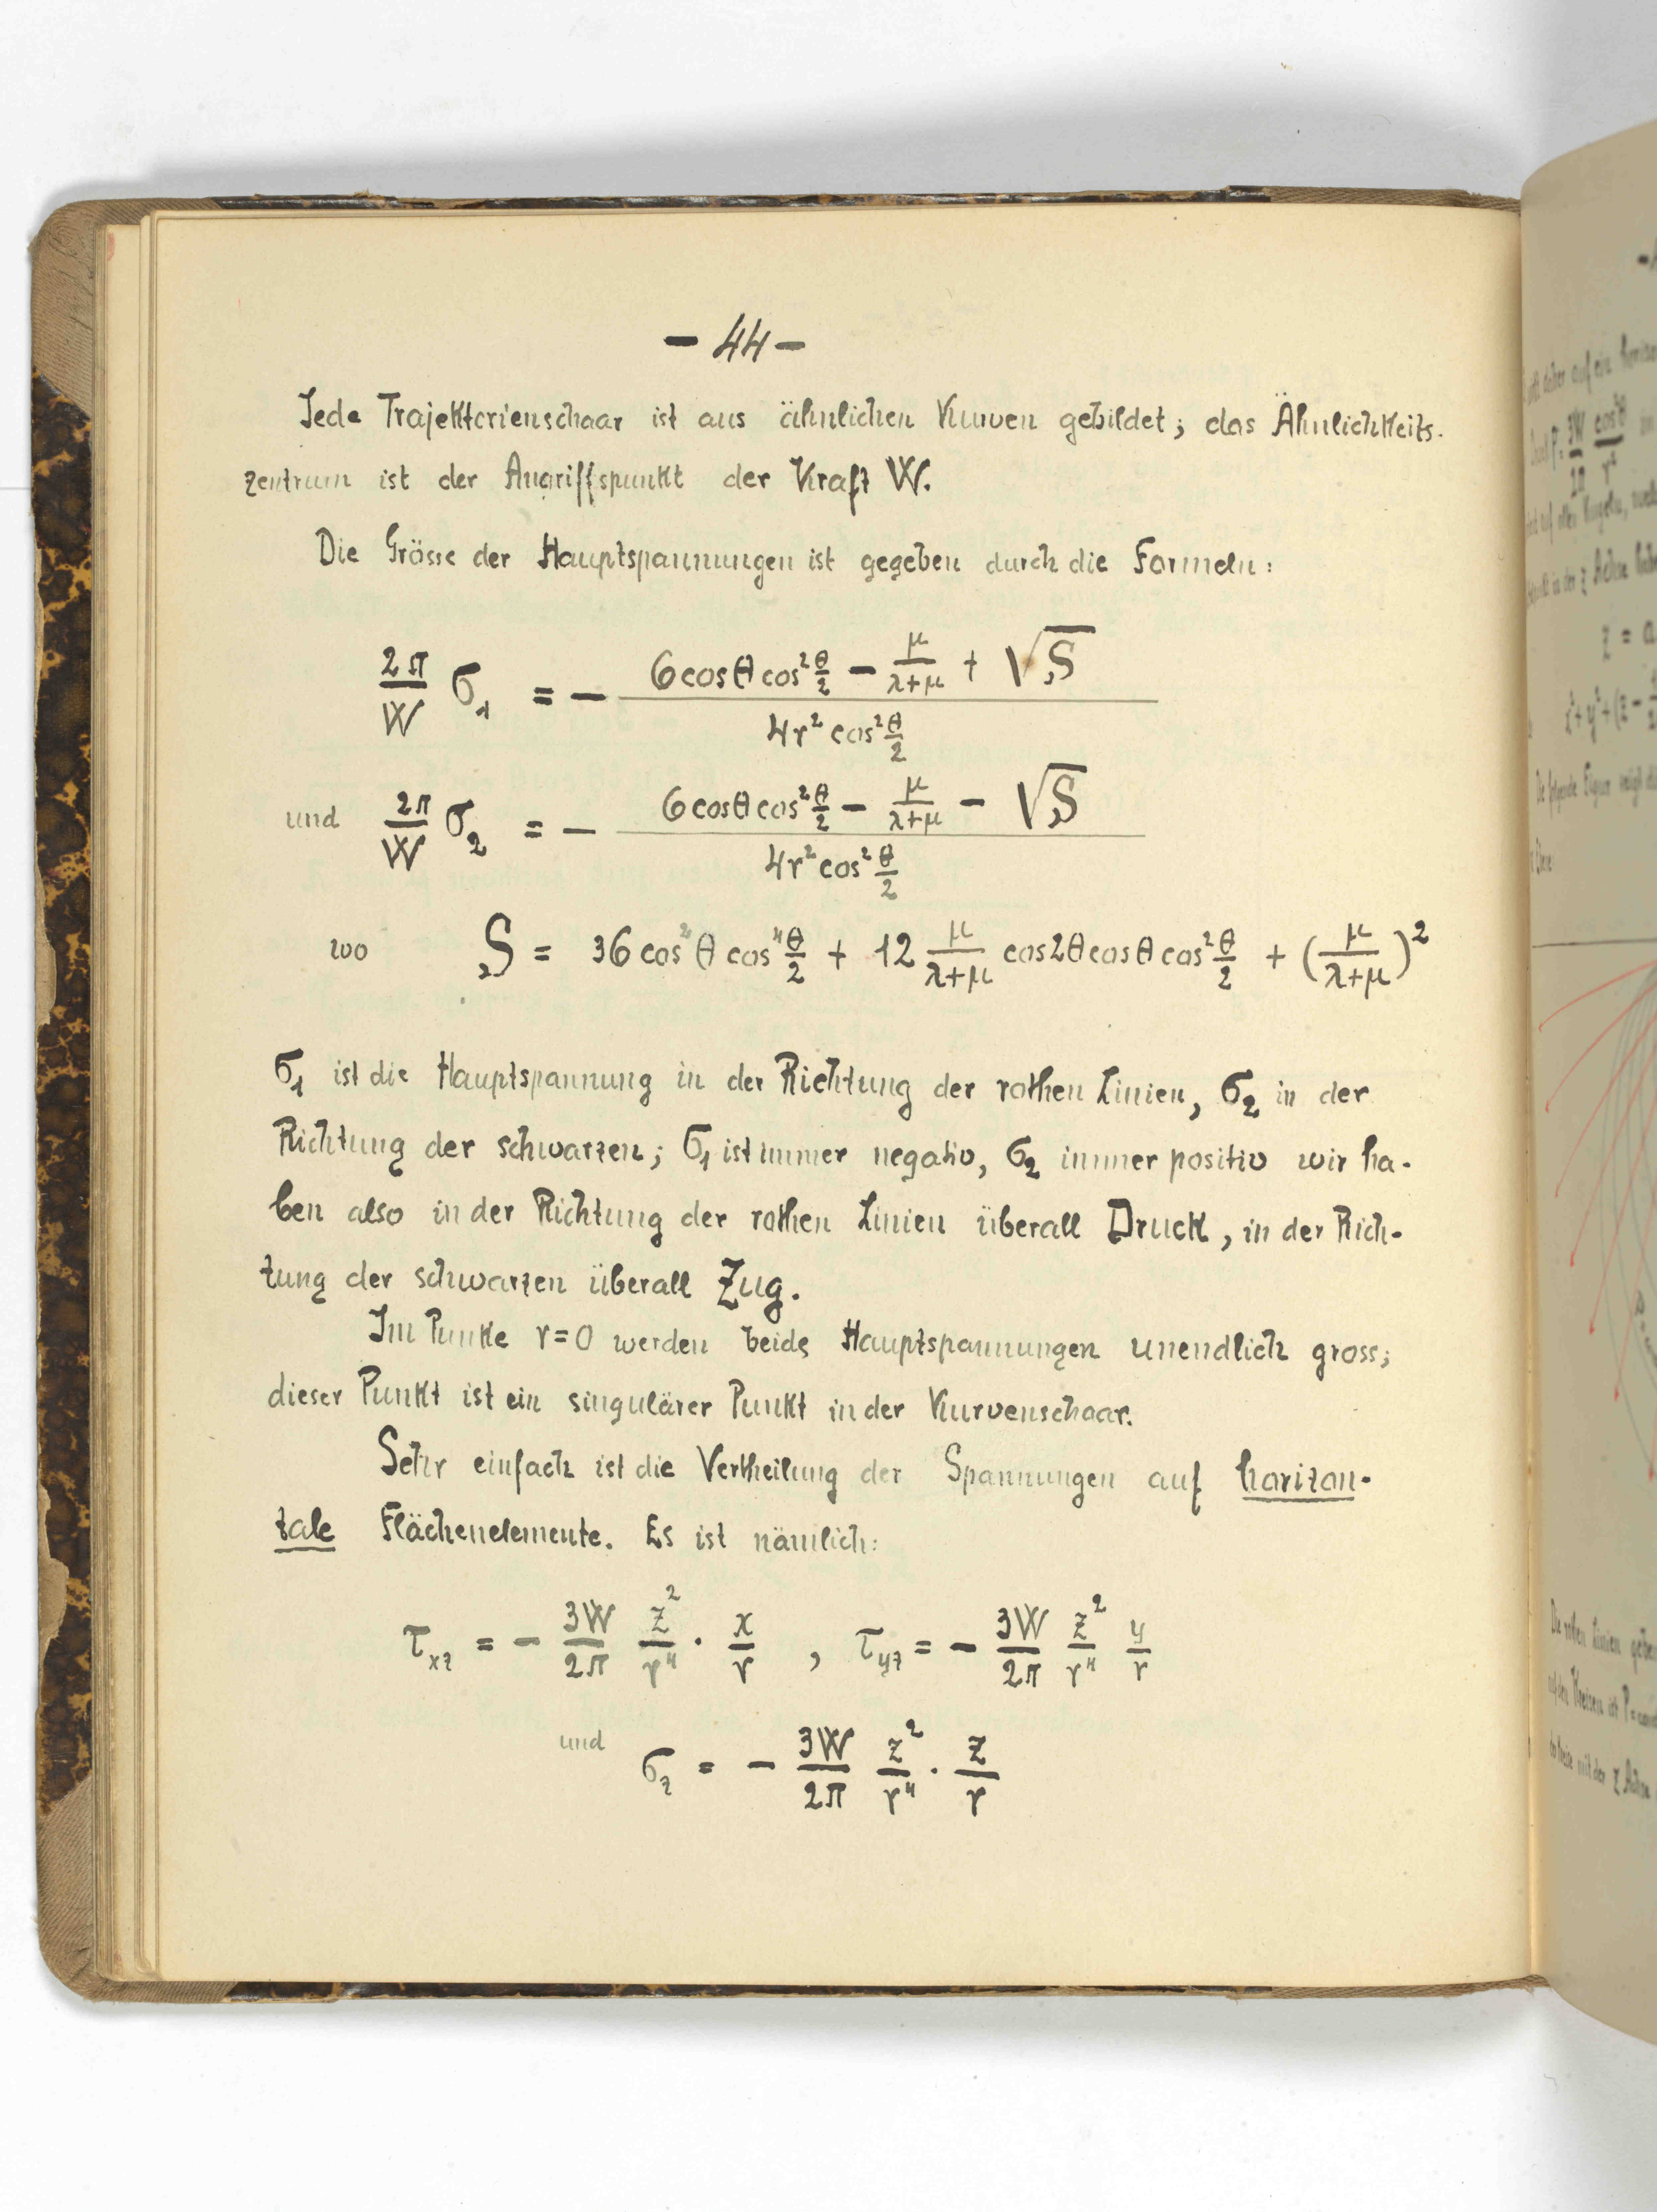 - 44 -
Jede Trajektorienschaar ist aus ähnlichen Kurven gebildet; das Ähnlichkeits-
zentrum ist der Angriffspunkt der Kraft W.
Die Grösse der Hauptspannungen ist gegeben durch die Formeln:
2π/W σ₁ = - (6 cosθ cos² θ/2 - μ/(λ+μ) + √S) / (4r² cos² θ/2)
und 2π/W σ₂ = - (6 cosθ cos² θ/2 - μ/(λ+μ) - √S) / (4r² cos² θ/2)
wo S = 36 cos² θ cos⁴ θ/2 + 12 μ/(λ+μ) cos2θ cosθ cos² θ/2 + (μ/(λ+μ))²
σ₁ ist die Hauptspannung in der Richtung der rothen Linien, σ₂ in der
Richtung der schwarzen; σ₁ ist immer negativ, σ₂ immer positiv wir ha-
ben also in der Richtung der rothen Linien überall Druck, in der Rich-
tung der schwarzen überall Zug.
Im Punkte r=0 werden beide Hauptspannungen unendlich gross;
dieser Punkt ist ein singulärer Punkt in der Kurvenschaar.
Sehr einfach ist die Vertheilung der Spannungen auf horizon-
tale Flächenelemente. Es ist nämlich:
τxz = - 3W/2π z²/r⁴ · x/r , τyz = - 3W/2π z²/r⁴ y/r
und σz = - 3W/2π z²/r⁴ · z/r